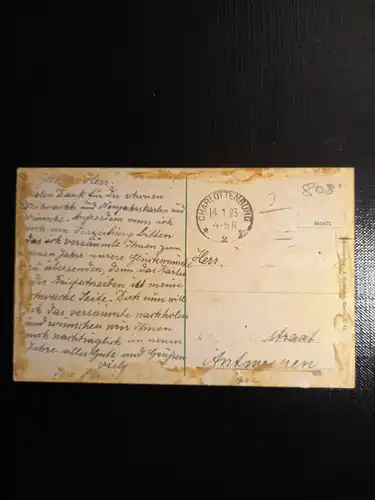 Herr.
vielen Dank für die schönen
Weihnachts und Neujahrskarten und
Wünsche. Außerdem muss ich
noch um Verzeihung bitten
das ich versäumte Ihnen zum
neuen Jahre unsere Glückwünsche
zu übersenden, denn das Karten
und Briefschreiben ist meine
schwache Seite. Doch nun will
ich das versäumte nachholen
und wünschen wir Ihnen
noch nachträglich im neuen
Jahre alles Gute und Grüßen
Viely
CHARLOTTENBURG
14.1.23
4-5 N
* 2
808
Herr
straat
Antwerpen